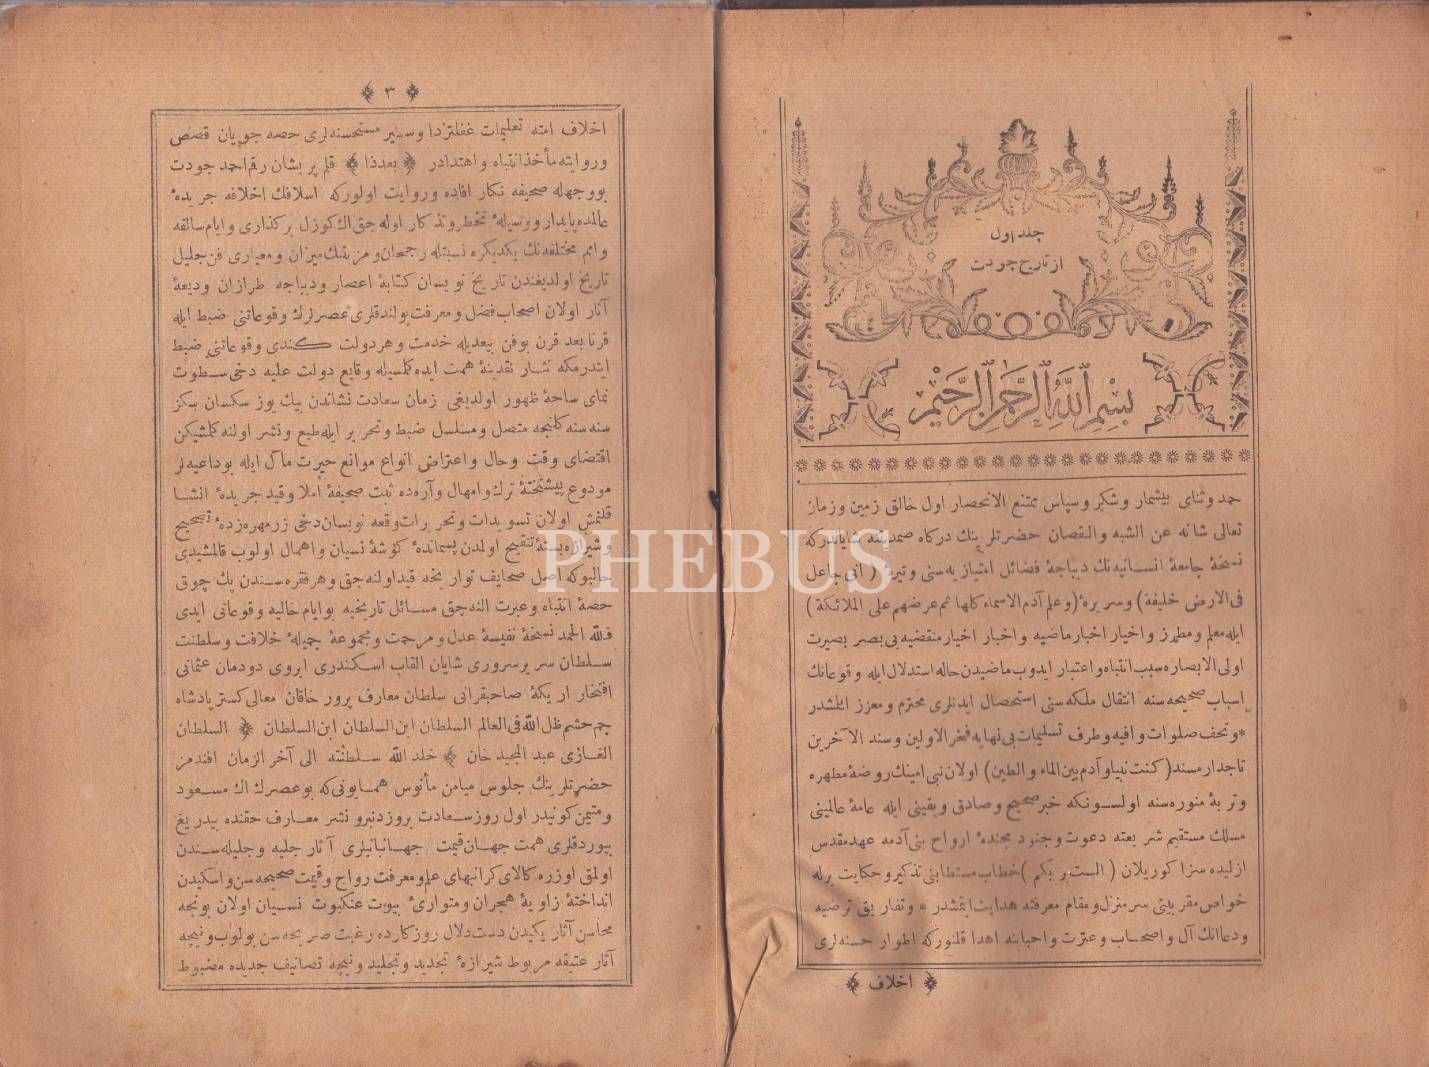 جلد اول
از تاریخ جودت
بسم الله الرحمن الرحیم
حمد وثنای بیشمار وشکر وسپاس ممتنع الانحصار اول خالق زمین وزمان
تعالی شانه عن الشبه والنقصان حضرتلرینك درکاه صمدیتنه شایاندرکه
نسخهٔ جامعهٔ انسانیه‌نك دیباجهٔ فضائل امتیازیه‌سنی وتیرهٔ (انی جاعل
فی الارض خلیفة) وسریرهٔ (وعلم آدم الاسماء کلها ثم عرضهم علی الملائکة)
ایله معلم ومطرز واخیار اخبار ماضیه واخبار اخیار منقضیه‌یی بصر بصیرت
اولی الابصاره سبب انتباه واعتبار ایدوب ماضیدن حاله استدلال ایله وقوعاتك
اسباب صحیحه‌سنه انتقال ملکه‌سنی استحصال ایدنلری محترم ومعزز ایلشدر
* وتحف صلوات وافیه وطرف تسلیمات بی‌نهایه فخر الاولین وسند الآخرین
تاجدار مسند (کنت نبیا وآدم بین الماء والطین) اولان نبی امینك روضهٔ مطهره
وتربهٔ منوره‌سنه اولسونکه خبر صحیح وصادق ویقینی ایله عامهٔ عالمینی
مسلك مستقیم شریعته دعوت وجنود مجندهٔ ارواح بنی‌آدمه عهد مقدس
ازلیده سزا کوریلان (الست بربکم) خطاب مستطابنی تذکیر وحکایت برله
خواص مقربینی سرمنزل ومقام معرفته هدایت ایتمشدر * وتفاریق ترضیه
ودعانك آل واصحاب وعترت واحبابنه اهدا قلنورکه اطوار حسنه‌لری
اخلاف
۳
اخلاف امته تعلیمات غفلتزدا وسیر مستحسنه‌لری حصه جویان قصص
وروایته مأخذ انتباه واهتدادر (بعدذا) قلم پریشان رقم احمد جودت
بووجهله صحیفه نکار افاده وروایت اولورکه اسلافك اخلافه جریدهٔ
عالمده پایدار ووسیلهٔ تخطر وتذکار اوله‌جق اك کوزل برکذاری وایام سالفه
وامم مختلفه‌نك یکدیکره نسبتله رجحان ومزیتنك میزان ومعیاری فن جلیل
تاریخ اولدیغندن تاریخ نویسان کتابهٔ اعصار ودیباجه طرازان ودیعهٔ
آثار اولان اصحاب فضل ومعرفت بولندقلری عصرلرك وقوعاتنی ضبط ایله
قرنا بعد قرن بوفن بیعدیله خدمت وهر دولت کندی وقوعاتنی ضبط
ایتدرمکه نثار نقدینهٔ همت ایده‌کلمسیله وقایع دولت علیه دخی سطوت
نمای ساحهٔ ظهور اولدیغی زمان سعادت نشاندن بیك یوز سکسان سکز
سنه‌سنه کلنجه متصل ومسلسل ضبط وتحریر ایله طبع ونشر اولنه‌کلمشیکن
اقتضای وقت وحال واعتراض انواع موانع حیرت مآل ایله بوداعیه‌لر
مودوع پیشتختهٔ ترك وامهال وآره‌ده ثبت صحیفهٔ املا وقید جریدهٔ انشا
قلنمش اولان تسویدات وتحریرات وقعه نویسان دخی زرمهره‌زدهٔ تصحیح
وشیرازه‌بستهٔ تنقیح اولمدن پسماندهٔ کوشهٔ نسیان واهمال اولوب قالمشیدی
حالبوکه اصل صحایف تواریخه قید اولنه‌جق وهر فقره‌سندن پك چوق
حصهٔ انتباه وعبرت النه‌جق مسائل تاریخیه بوایام خالیه وقوعاتی ایدی
فلله الحمد نسخهٔ نفیسهٔ عدل ومرحمت ومجموعهٔ جمیلهٔ خلافت وسلطنت
سلطان سریر سروری شایان القاب اسکندری ابروی دودمان عثمانی
افتخار اریکهٔ صاحبقرانی سلطان معارف پرور خاقان معالی کستر پادشاه
جم حشم ظل الله فی العالم السلطان ابن السلطان ابن السلطان (السلطان
الغازی عبد المجید خان) خلد الله سلطنته الی آخر الزمان افندمز
حضرتلرینك جلوس میامن مأنوس همایونی‌که بوعصرك اك مسعود
ومتیمن کونیدر اول روز سعادت بروزدنبرو نشر معارف حقنده بیدریغ
بیوردقلری همت جهان قیمت جهانبانیلری آثار جلیه وجلیله‌سندن
اولمق اوزره کالای کرانبهای علم ومعرفت رواج وقیمت صحیحه‌سن واسکیدن
انداختهٔ زاویهٔ هجران ومتواریٔ بیوت عنکبوت نسیان اولان بونجه
محاسن آثار یکیدن دست دلال روزکارده رغبت صریحه‌سن بولوب ونیچه
آثار عتیقه مربوط شیرازهٔ تجدید وتجلید ونیچه تصانیف جدیده مضبوط
PHEBUS